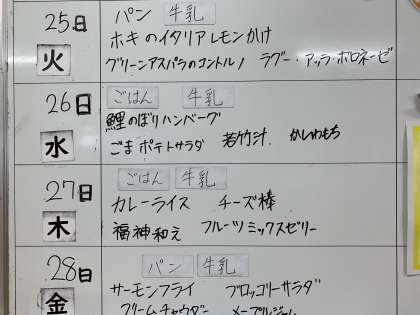 25日 パン 牛乳
火 ホキのイタリアレモンかけ
グリーンアスパラのコントルノ ラグー・アッラ・ボロネーゼ
26日 ごはん 牛乳
鯉のぼりハンバーグ
水 ごまポテトサラダ 若竹汁 かしわもち
27日 ごはん 牛乳
カレーライス チーズ棒
木 福神和え フルーツミックスゼリー
28日 パン 牛乳
サーモンフライ ブロッコリーサラダ
金 クリームチャウダー メープルジャム